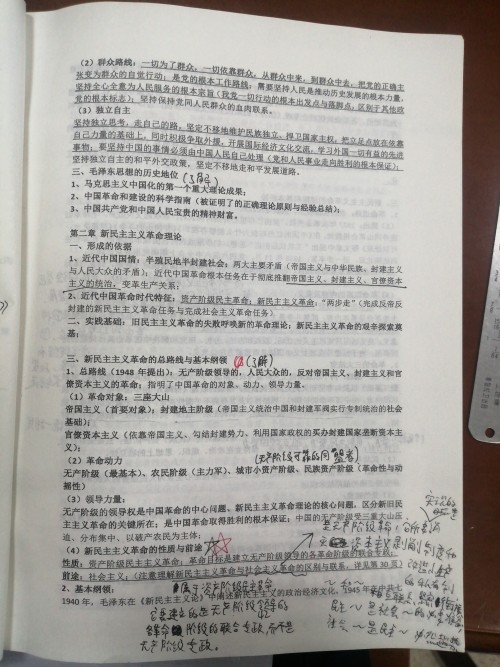 （2）群众路线：一切为了群众，一切依靠群众，从群众中来，到群众中去，把党的正确主
张变为群众的自觉行动；是党的根本工作路线；需要坚持人民是推动历史发展的根本力量，
坚持全心全意为人民服务的根本宗旨（我党一切行动的根本出发点与落脚点，区别于其他政
党的根本标志）；坚持保持党同人民群众的血肉联系。
（3）独立自主
坚持独立思考，走自己的路；坚定不移地维护民族独立，捍卫国家主权，把立足点放在依靠
自己力量的基础上，同时积极争取外援，开展国际经济文化交流，学习外国一切有益的先进
事物；要坚持中国的事情必须由中国人民自己处理（党和人民事业走向胜利的根本保证）；
坚持独立自主的和平外交政策，坚定不移走和平发展道路。
三、毛泽东思想的历史地位（了解）
1、马克思主义中国化的第一个重大理论成果；
2、中国革命和建设的科学指南（被证明了的正确理论原则与经验总结）；
3、中国共产党和中国人民宝贵的精神财富。
第二章 新民主主义革命理论
一、形成的依据
1、近代中国国情：半殖民地半封建社会；两大主要矛盾（帝国主义与中华民族、封建主义
与人民大众的矛盾）；近代中国革命根本任务在于彻底推翻帝国主义、封建主义、官僚资本
主义的统治，变革生产关系；
2、近代中国革命时代特征：资产阶级民主革命；新民主主义革命，“两步走”（完成反帝反
封建的新民主主义革命任务与完成社会主义革命任务）
二、实践基础：旧民主主义革命的失败呼唤新的革命理论；新民主主义革命的艰辛探索奠
基；
三、新民主主义革命的总路线与基本纲领（了解）
1、总路线（1948 年提出）：无产阶级领导的，人民大众的，反对帝国主义、封建主义和官
僚资本主义的革命；指明了中国革命的对象、动力、领导力量。
（1）革命对象：三座大山
帝国主义（首要对象）；封建地主阶级（帝国主义统治中国和封建军阀实行专制统治的社会
基础）；
官僚资本主义（依靠帝国主义、勾结封建势力、利用国家政权的买办封建国家垄断资本主
义）；
（2）革命动力（无产阶级可靠的同盟者）
无产阶级（最基本）、农民阶级（主力军）、城市小资产阶级、民族资产阶级（革命性与动
摇性）
（3）领导力量：
无产阶级的领导权是中国革命的中心问题、新民主主义革命理论的核心问题，区分新旧民
主主义革命的关键所在；是中国革命取得胜利的根本保证；中国的无产阶级受三重大山压
迫、分布集中、以破产农民为主体；
（4）新民主主义革命的性质与前途
性质：资产阶级民主革命；革命目标是建立无产阶级领导的各革命阶级的联合专政；
前途：社会主义；（注意理解新民主主义革命与社会主义革命的区别与联系，详见第30页）
2、基本纲领：
1940 年，毛泽东在《新民主主义论》中阐述新民主主义的政治经济文化，1945 年在中共七
无产阶级专政。